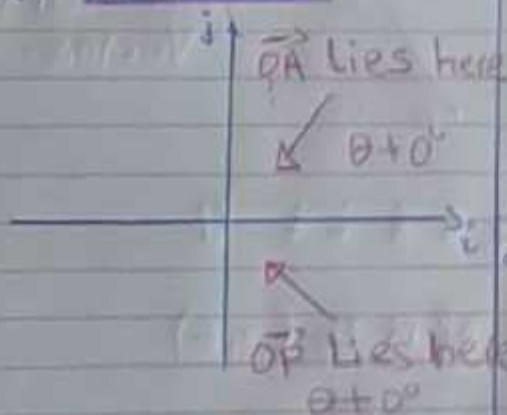 j
OA Lies here
θ+0°
i
OP Lies here
θ+0°